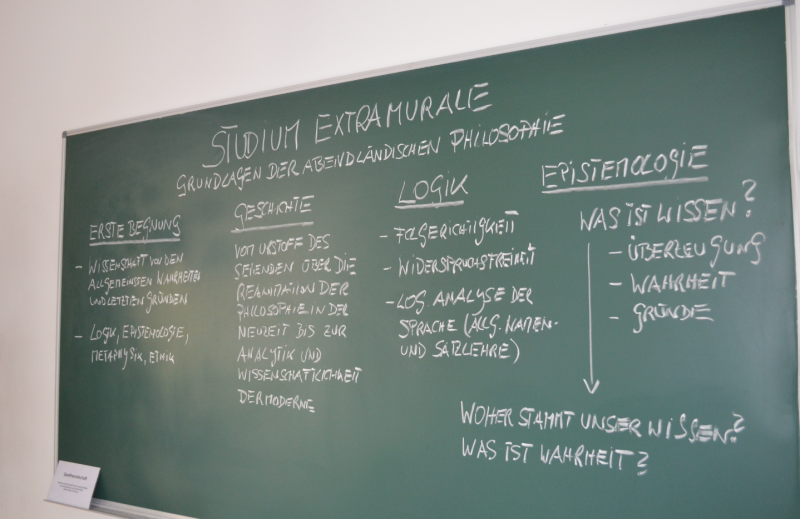 STUDIUM EXTRAMURALE
GRUNDLAGEN DER ABENDLÄNDISCHEN PHILOSOPHIE
ERSTE BEGNUNG
- WISSENSCHAFT VON DEN
ALLGEMEINSTEN WAHRHEITEN
UND LETZTEN GRÜNDEN
- LOGIK, EPISTEMOLOGIE,
METAPHYSIK, ETHIK
GESCHICHTE
VOM URSTOFF DES
SEIENDEN ÜBER DIE
REANIMATION DER
PHILOSOPHIE IN DER
NEUZEIT BIS ZUR
ANALYTIK UND
WISSENSCHAFTLICHKEIT
DER MODERNE
LOGIK
- FOLGERICHTIGKEIT
- WIDERSPRUCHSFREIHEIT
- LOG ANALYSE DER
SPRACHE (ALLG. NAMEN-
UND SATZLEHRE)
EPISTEMOLOGIE
WAS IST WISSEN?
- ÜBERZEUGUNG
- WAHRHEIT
- GRÜNDE
WOHER STAMMT UNSER WISSEN?
WAS IST WAHRHEIT?